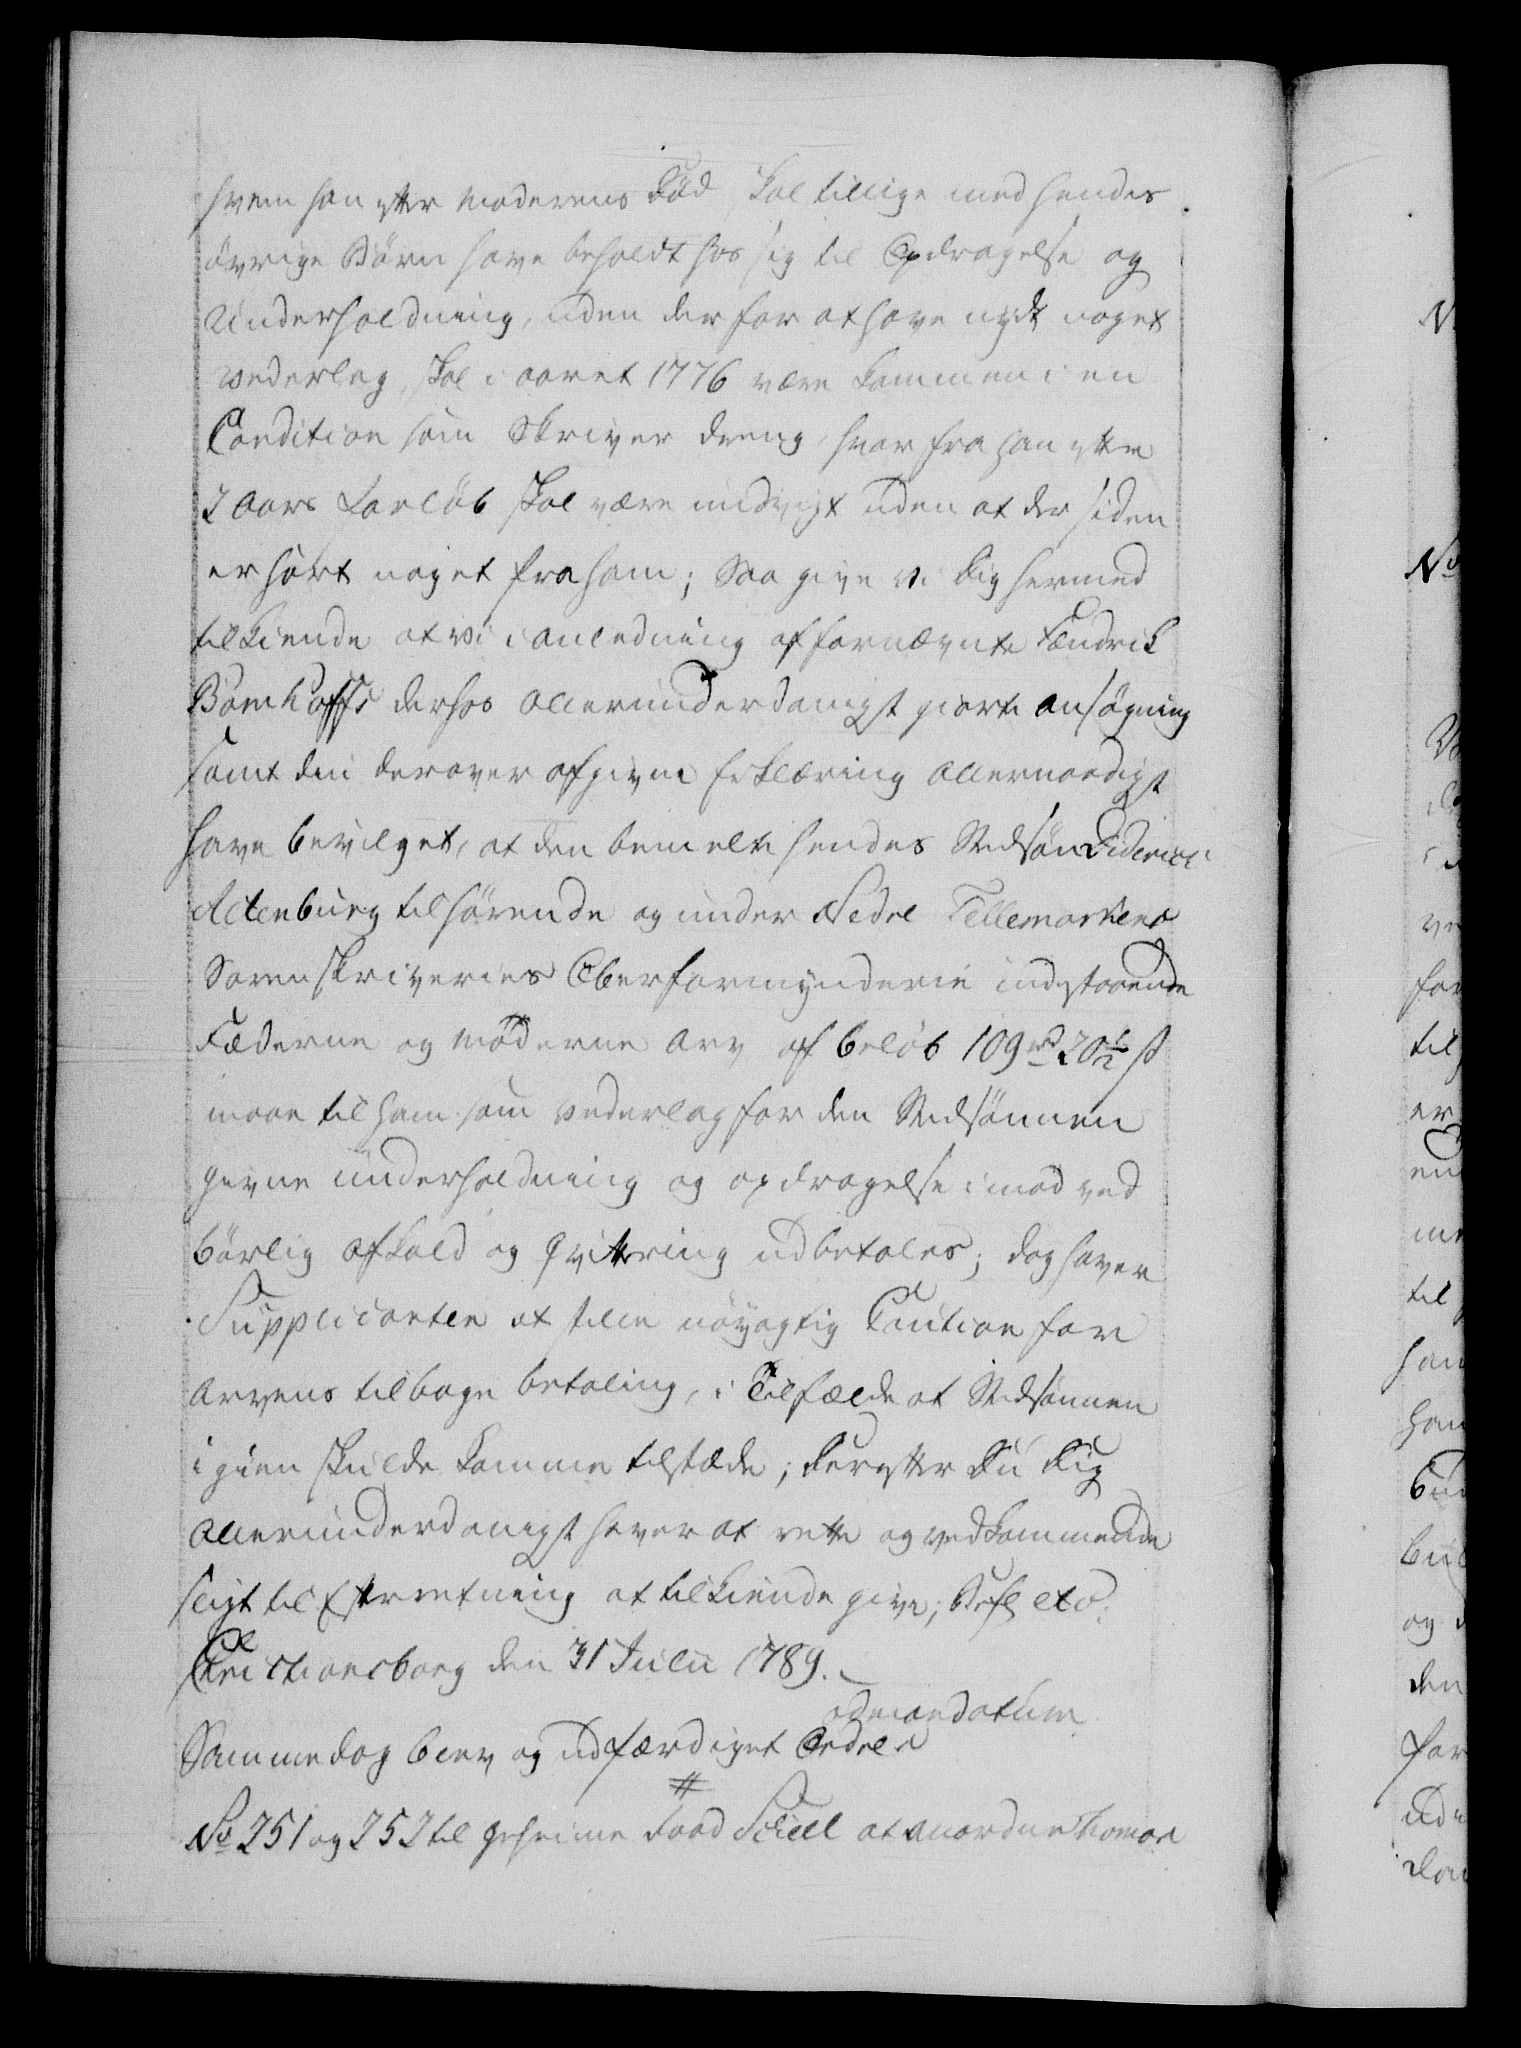 hvem han efter Moderens Död, skal tillige med hendes
övrige Börn have beholdt hos sig til Opdragelse og
Underholdning, uden derfor at have nydt noget
Vederlag, skal i aaret 1776 være kommen i en
Condition som Skriver dreng, hvor fra han efter
2 Aars Forlöb skal være undvigt uden at der siden
er hört noget fra ham; Saa give Vi dig hermed
tilkiende at vi i anledning af fornævnte Fændrik
Bomhoffs derhos allerunderdanigst giorte ansøgning
samt din derover afgivne Erklæring allernaadigst
have bevilget, at den bemelte hendes Stedsön Diderich
Altenburg tilhörende og under Nedre Tellemarkens
Sorenskriveries Oberformynderie indestaaende
Fæderne og Möderne Arv af beløb 109 rd 20½ s
maae til ham som vederlag for den Stedsönnen
givne underholdning og opdragelse imod ved
börlig afkald og qvittering udbetales; dog haver
Supplicanten at stille nöyagtig Caution for
Arvens tilbage betaling, i Tilfælde at Stedsönnen
igien skulde komme tilstæde; Derefter Du Dig
allerunderdanigst haver at rette og vedkommende
sligt til Efterretning at tilkiende give; Befl etc:
Christiansborg den 31 Julii 1789.
ad mandatum
Samme dag blev og udfærdiget Ordre
#
No 251 og 252 til geheime Raad Scheel at anordne Thomas